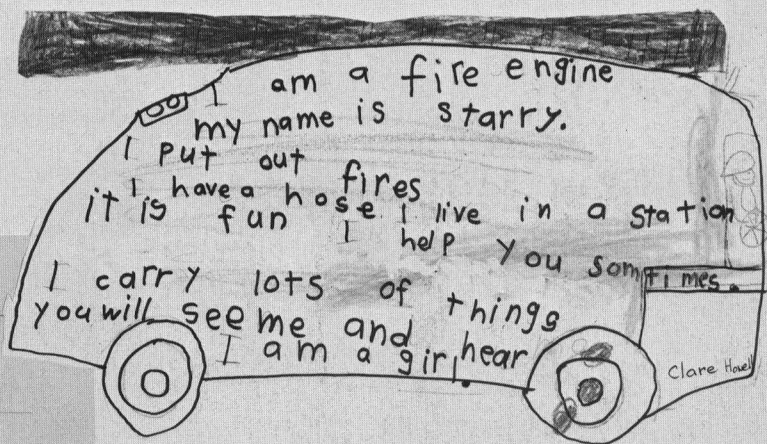 I am a fire engine
my name is starry.
I put out fires
I have a hose I live in a station
it is fun I help you somtimes.
I carry lots of things
you will see me and hear
I am a girl.
Clare Howell